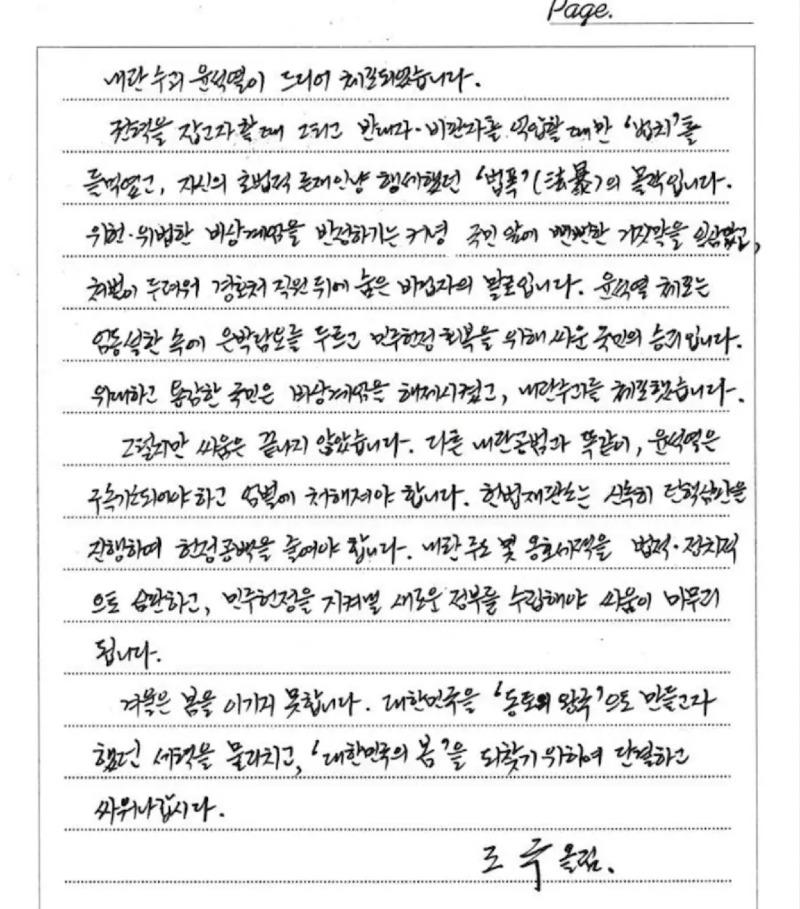 Page.
내란 수괴 윤석열이 드디어 체포되었습니다.
권력을 잡고자 할 때 그리고 반대자·비판자를 억압할 때만 '법치'를
들먹였고, 자신의 초법적 존재인양 행세했던 '법폭'(法暴)의 몰락입니다.
위헌·위법한 비상계엄을 반성하기는커녕 국민 앞에 뻔뻔한 거짓말을 일삼았고,
처벌이 두려워 경호처 직원 뒤에 숨은 비겁자의 말로입니다. 윤석열 체포는
엄동설한 속에 은박담요를 두르고 민주헌정 회복을 위해 싸운 국민의 승리입니다.
위대하고 용감한 국민은 비상계엄을 해제시켰고, 내란수괴를 체포했습니다.
그렇지만 싸움은 끝나지 않았습니다. 다른 내란공범과 똑같이, 윤석열은
구속기소되어야 하고 엄벌에 처해져야 합니다. 헌법재판소는 신속히 탄핵심판을
진행하여 헌정공백을 줄여야 합니다. 내란 주도 및 옹호세력을 법적·정치적
으로 심판하고, 민주헌정을 지켜낼 새로운 정부를 수립해야 싸움이 마무리
됩니다.
겨울은 봄을 이기지 못합니다. 대한민국을 '동토의 왕국'으로 만들고자
했던 세력을 물리치고, '대한민국의 봄'을 되찾기 위하여 단결하고
싸워나갑시다.
조국 올림.